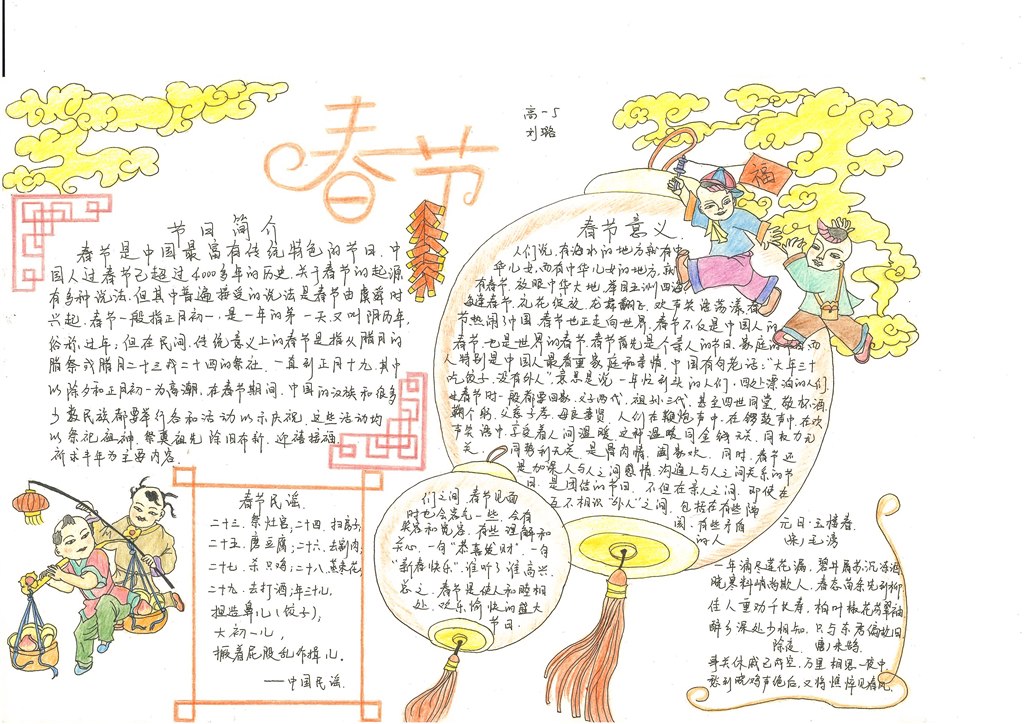 春节
高一5
刘璐
福
节日简介
春节是中国最富有传统特色的节日。中
国人过春节已超过4000多年的历史。关于春节的起源
有多种说法，但其中普遍接受的说法是春节由虞舜时
兴起。春节一般指正月初一，是一年的第一天，又叫阴历年，
俗称过年；但在民间，传统意义上的春节是指从腊月的
腊祭或腊月二十三或二十四的祭灶，一直到正月十九，其中
以除夕和正月初一为高潮。在春节期间，中国的汉族和很多
少数民族都要举行各种活动以示庆祝。这些活动均
以祭祀祖神，祭奠祖先，除旧布新，迎禧接福，
祈求丰年为主要内容。
春节意义
人们说，有海水的地方就有中
华儿女，而有中华儿女的地方，就
有春节。放眼中华大地，举目五洲四海，
每逢春节，礼花绽放，龙狮翻子，欢声笑语荡漾着
节热闹了中国，春节也正走向世界，春节不仅是中国人的
春节，也是世界的春节，春节首先是个亲人的节日，家庭的节日，而
人特别是中国人最看重家庭和亲情，中国有句老话："大年三十
吃饺子，没有外人"意思是说，一年忙到头的人们，四处漂泊的人们
此春节时一般都要回家，父子两代，祖孙三代，甚至四世同堂，敬杯酒，
鞠个躬，父慈子孝，母良妻贤，人们在鞭炮声中，在锣鼓声中，在欢
声笑语中，享受着人间温暖，这种温暖同金钱无关，同权力无
关，同势利无关，是骨肉情，阖家欢。同时，春节还
是加深人与人之间感情，沟通人与人之间关系的节
日，是团结的节日，不但在亲人之间，即使在
互不相识"外人"之间，包括在有些隔
阂，有些矛盾
的人
们之间，春节见面
时也会客气一些，会有
笑容和宽容，有些理解和
关心，一句"恭喜发财"，一句
"新春快乐"，谁听了谁高兴
总之，春节是使人和睦相
处，欢乐愉快的盛大
节日。
春节民谣
二十三，祭灶宫；二十四，扫房子；
二十五，磨豆腐；二十六，去割肉；
二十七，杀只鸡；二十八，蒸枣花；
二十九，去打酒；年三十儿，
捏造鼻儿（饺子）；
大初一儿，
撅着屁股乱作揖儿。
——中国民谣
元日·玉楼春
宋）毛滂
一年滴尽莲花漏，碧井屠苏沉冻酒
晓寒料峭尚欺人，春态苗条先到柳
佳人重劝千长寿，柏叶椒花芬翠袖
醉乡深处少相知，只与东君偏故旧
除夜 唐）来鹄
事关休戚已成空，万里相思一夜中
愁到晓鸡声绝后，又将憔悴见春风